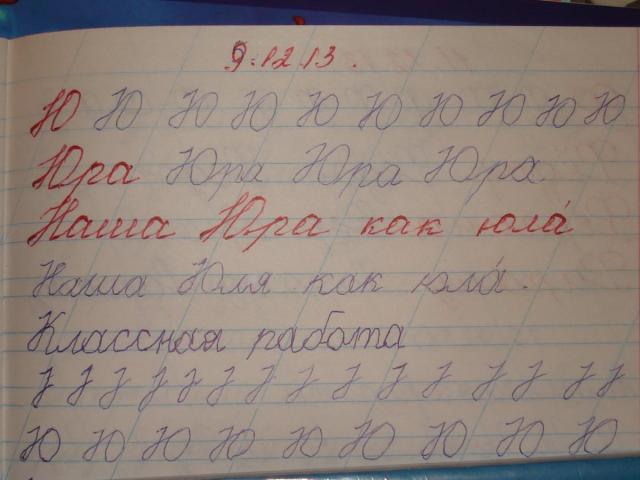 9.12.13.
Ю Ю Ю Ю Ю Ю Ю Ю Ю Ю
Юра Юра Юра Юра
Наша Юра как юла́
Наша Юля как юла́.
Классная работа
Ю Ю Ю Ю Ю Ю Ю Ю Ю